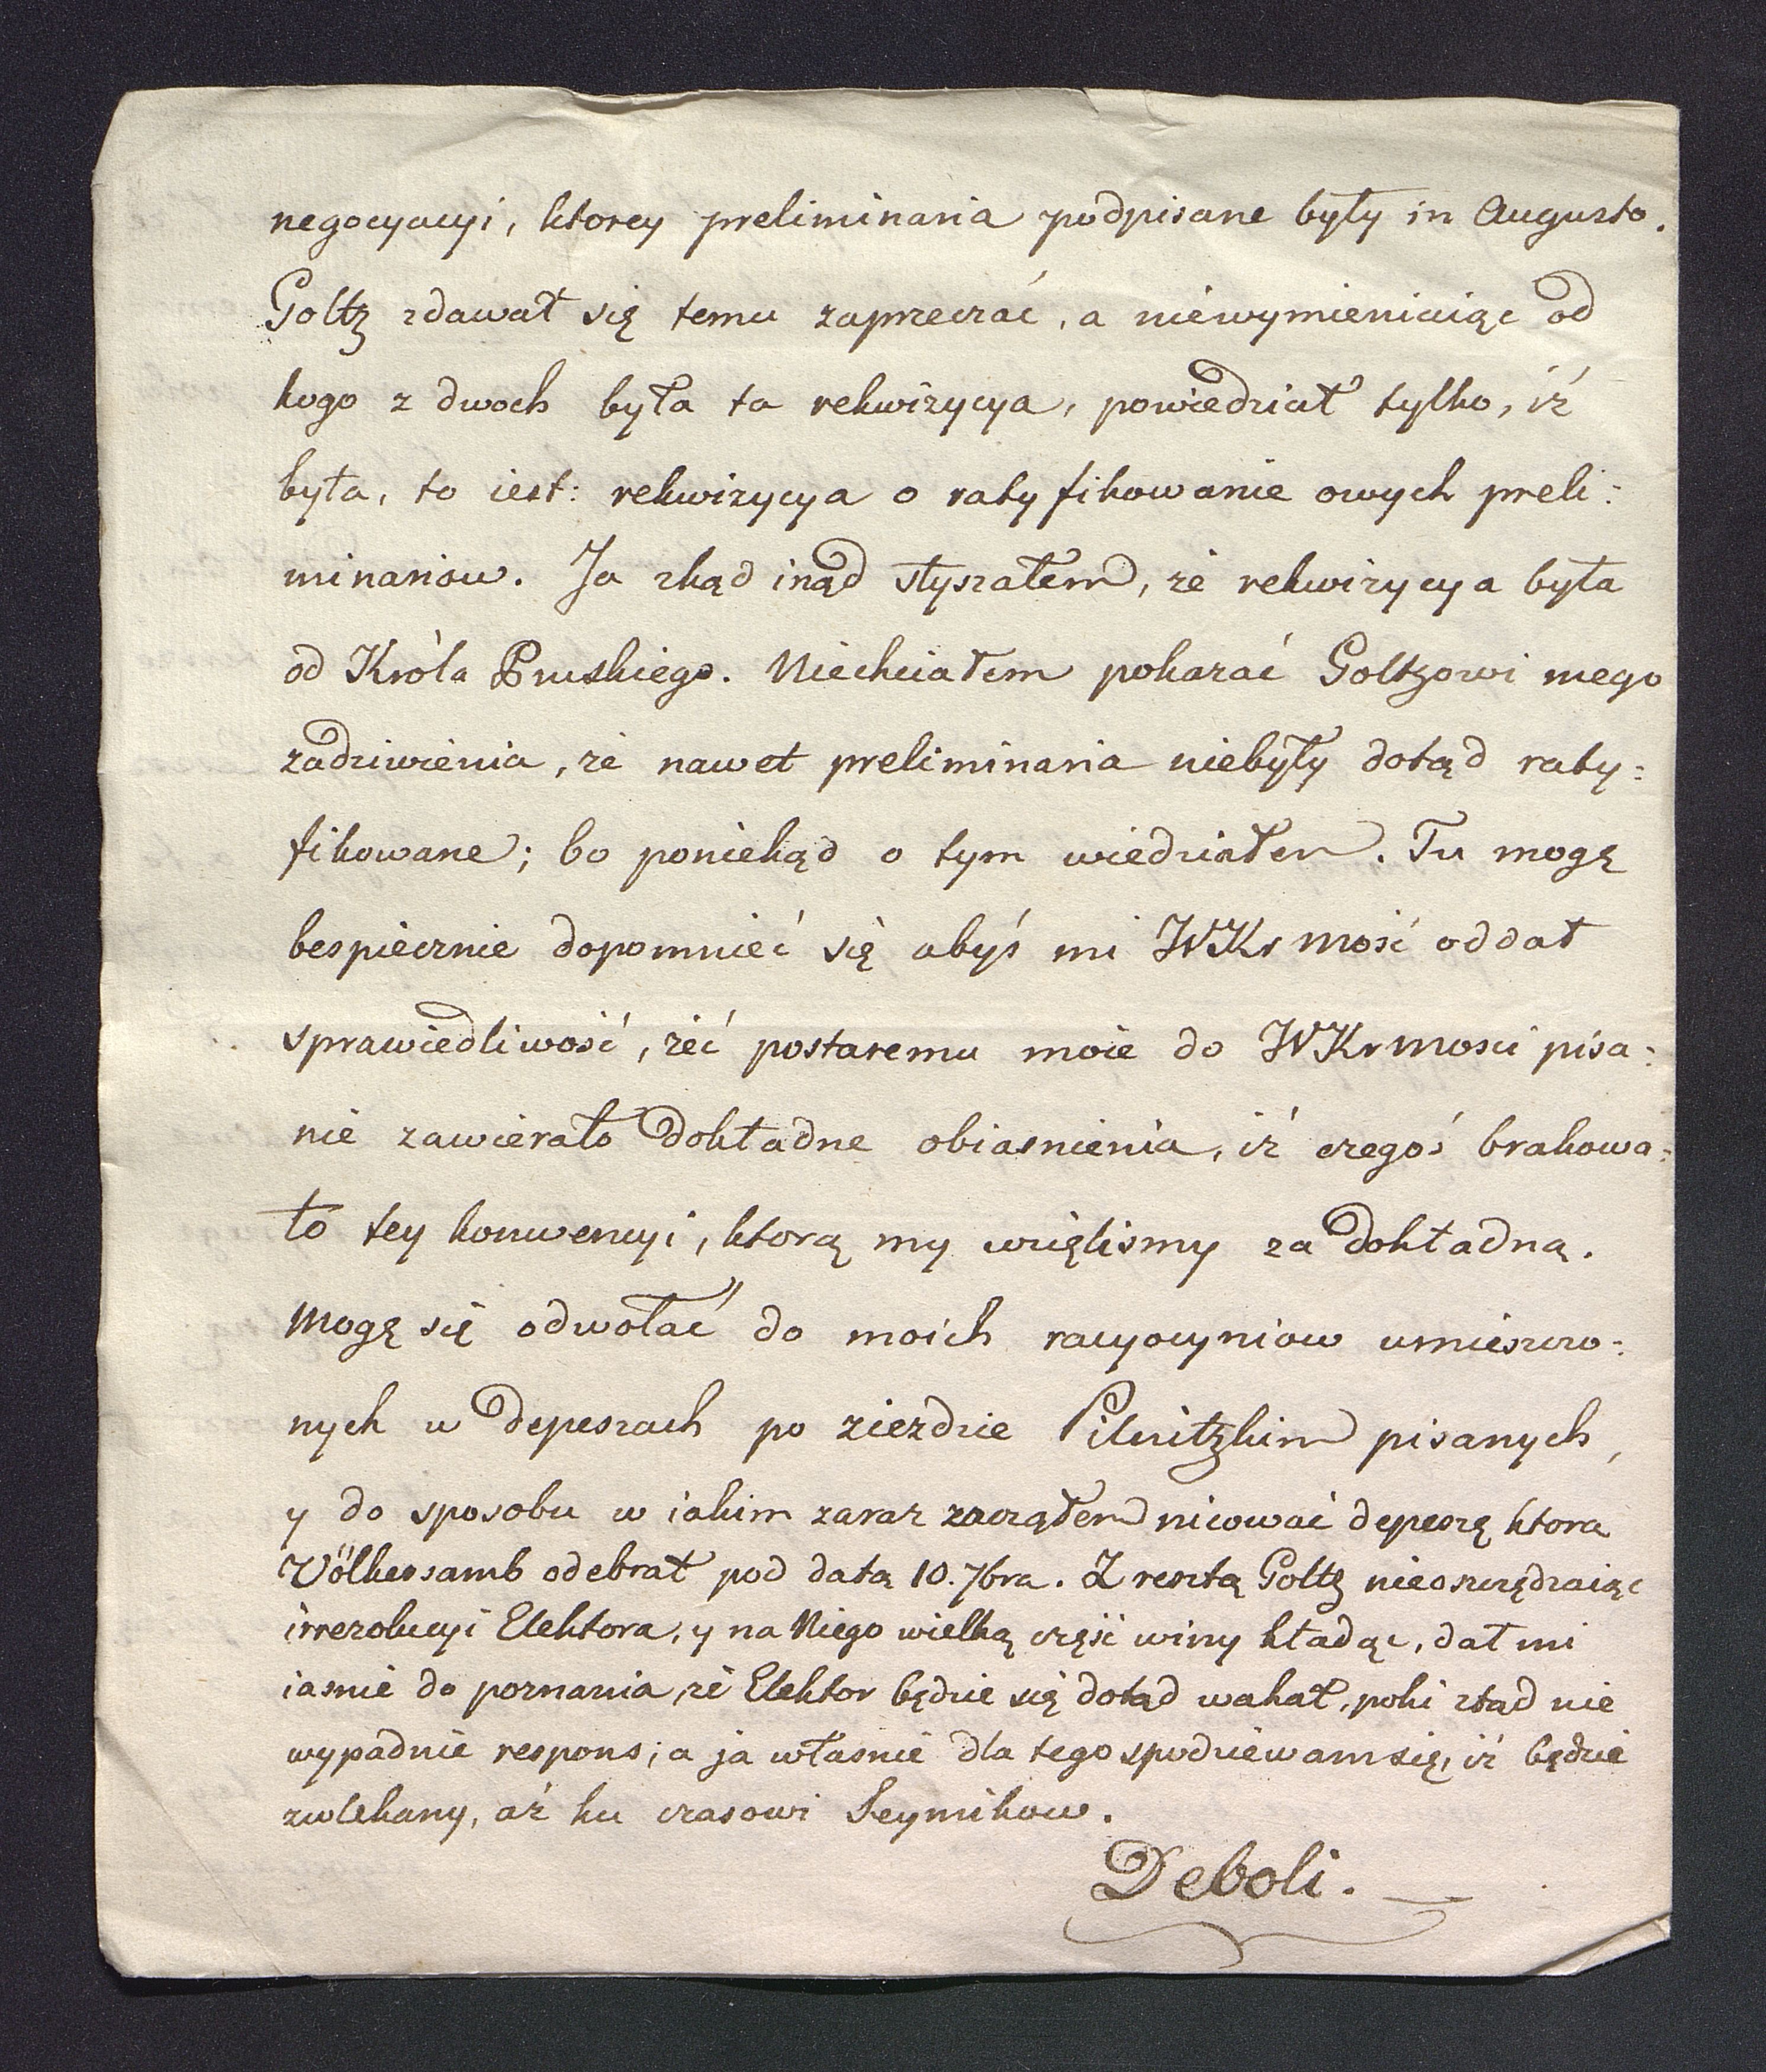 negocyacyi, ktorey preliminaria podpisane były in Augusto.
Goltz zdawał się temu zaprzeczać, a niewymieniaiąc od
kogo z dwoch była ta rekwizycya, powiedział tylko, iż
była, to iest: rekwizycya o ratyfikowanie owych preli:
minariow. Ja zkąd inąd słyszałem, że rekwizycya była
od Króla Pruskiego. Niechciałem pokazać Goltzowi mego
zadziwienia, że nawet preliminaria niebyły dotąd raty:
fikowane; bo poniekąd o tym wiedziałem. Tu mogę
bespiecznie dopomnieć się abyś mi WKr Mość oddał
sprawiedliwość, żeć postaremu moie do WKrMosci pisa:
nie zawierało dokładne obiasnienia, iż czegoś brakowa:
ło tey konwencyi, ktorą my wzięlismy za dokładną.
Mogę się odwołać do moich racyocyniow umieszczo:
nych w depeszach po zieździe Pilnitzkim pisanych,
y do sposobu w iakim zaraz zacząłem nicować depeszę ktora
Völkersamb odebrał pod datą 10. 7bra. Z resztą Goltz nieoszczędzaiąc
irrezolucyi Elektora, y na Niego wielką część winy kładąc, dał mi
iasnie do poznania, że Elektor będzie się dotąd wahał, poki ztąd nie
wypadnie respons; a ja własnie dla tego spodziewam się, iż będzie
zwlekany, aż ku czasowi Seymikow.
Deboli.